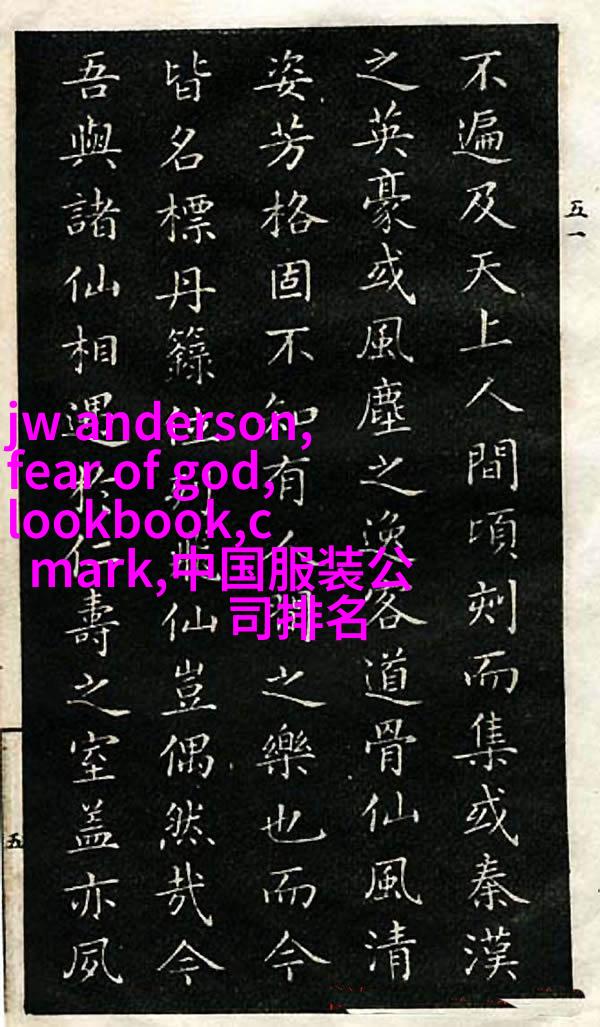 不遍及天上人間頃刻而集或秦漢
之英豪或風塵之逸客道骨仙風清
姿芳格固不知有人間之樂也而今
皆名標丹籙位列仙豈偶然哉今
吾與諸仙相遇於仁壽之室蓋亦夙
五一
五
jw anderson,
fear of god,
lookbook,c
mark,中国服装公
司排名